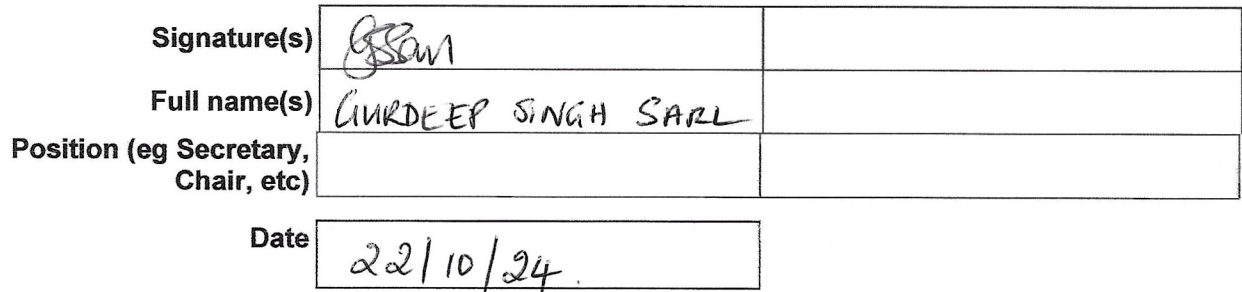 Signature(s)
Full name(s) GURDEEP SINGH SARL
Position (eg Secretary,
Chair, etc)
Date 22/10/24.